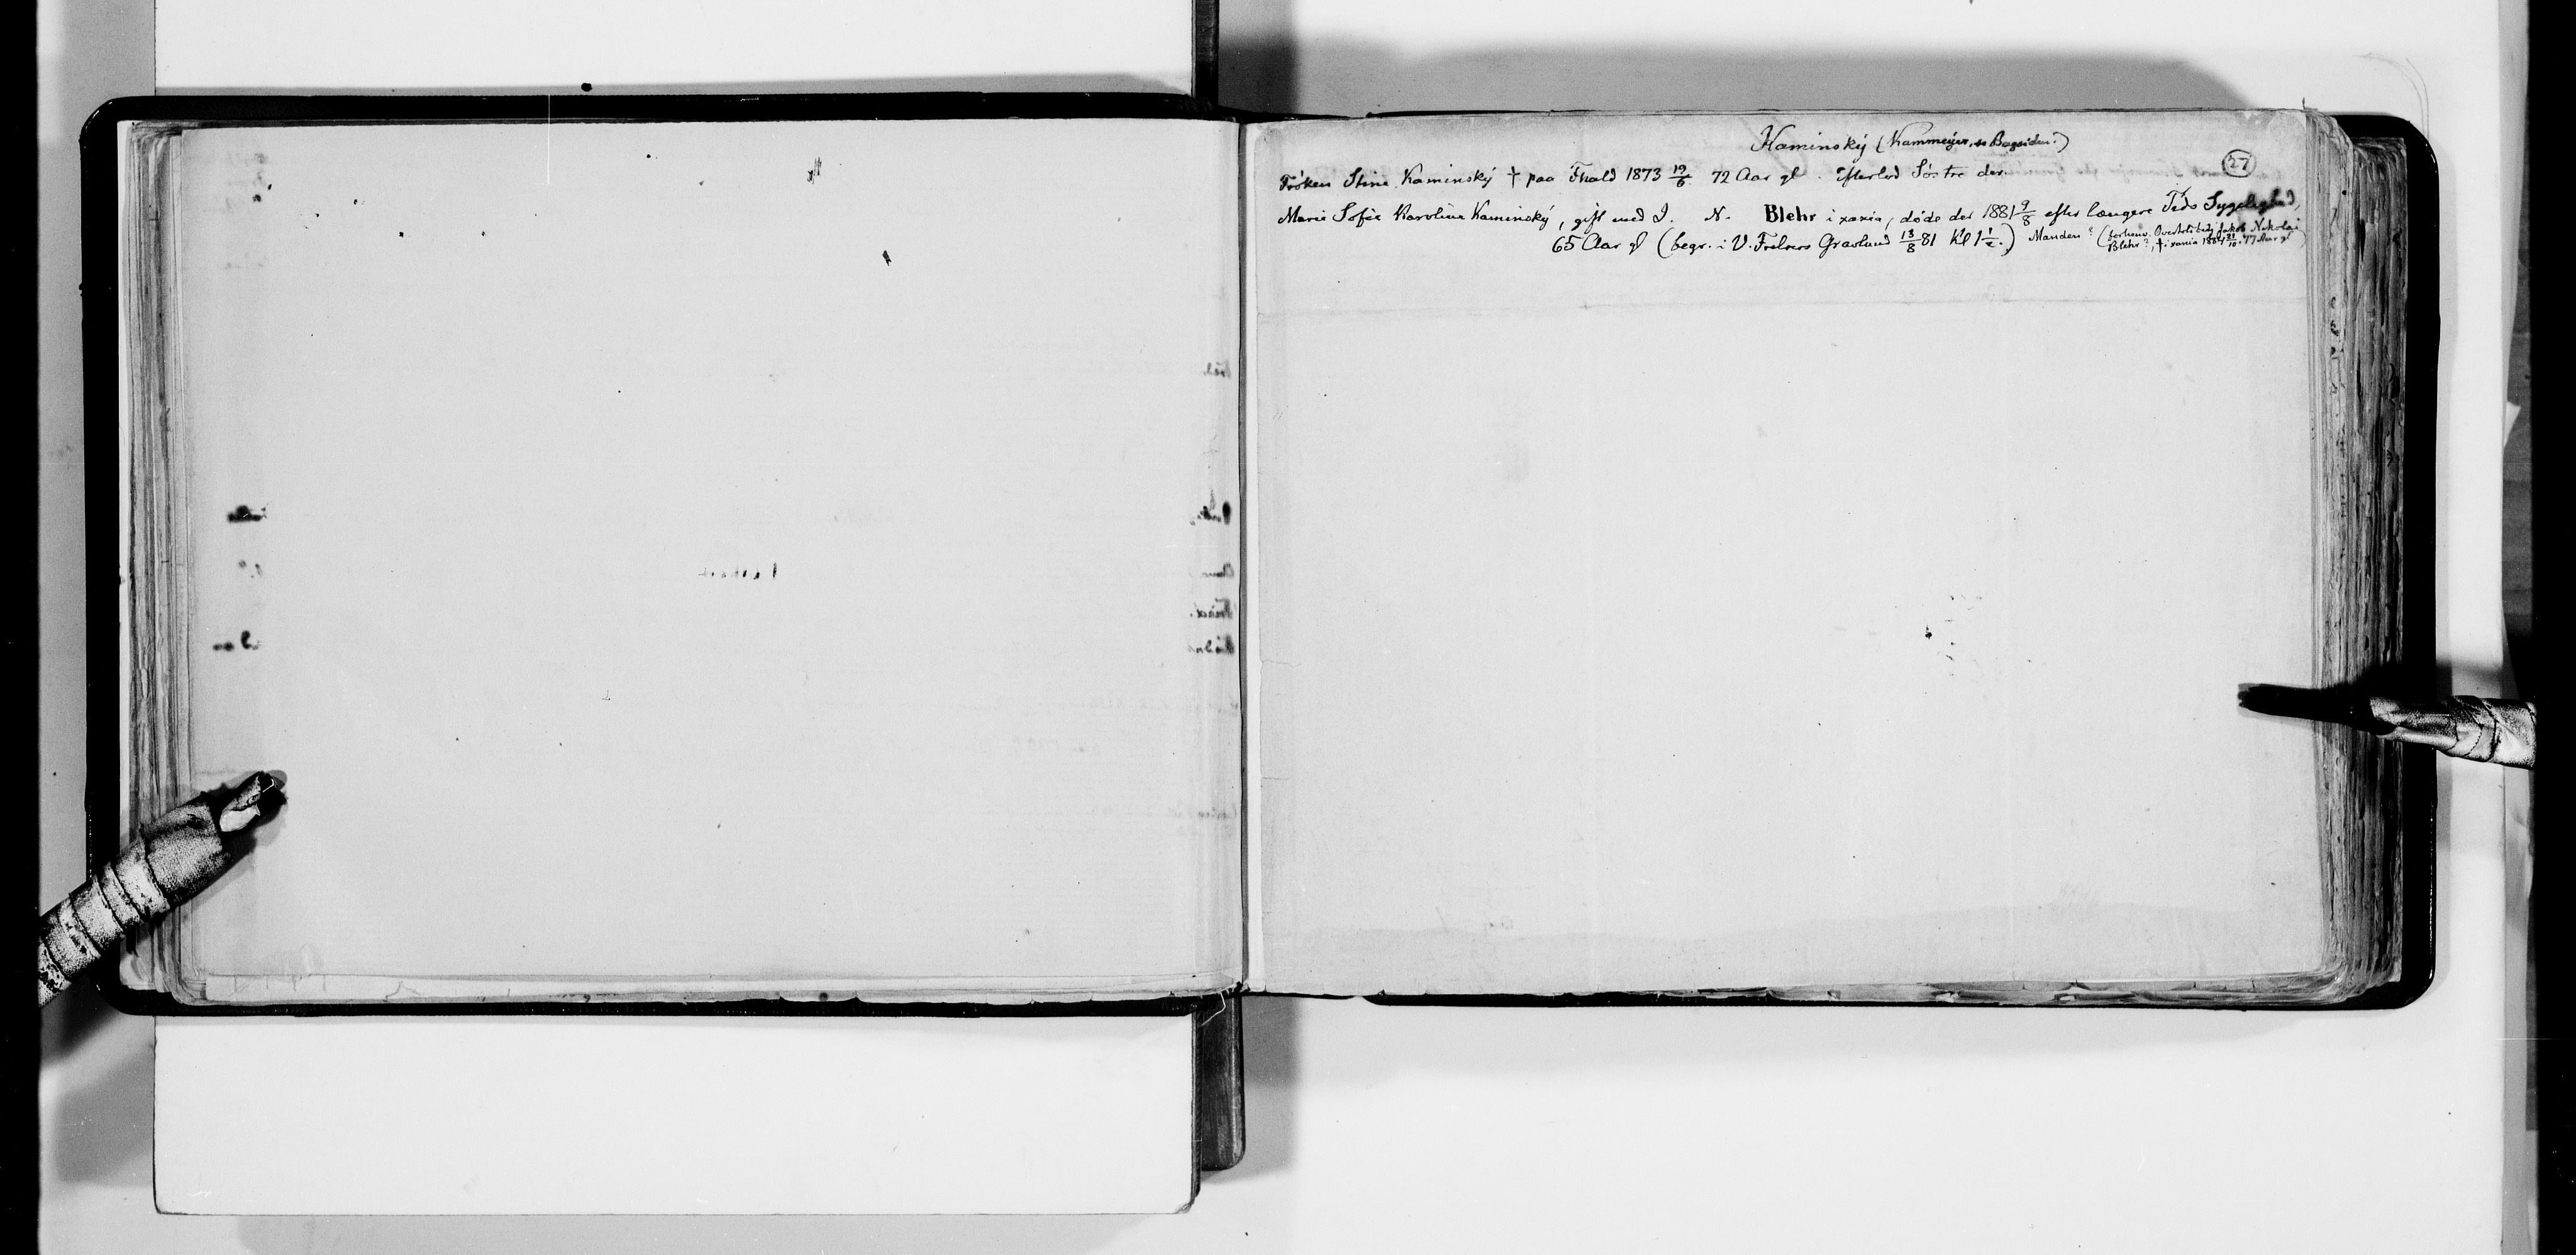 Kaminský (Kammeijer, se Bagsiden.)
27
Frøken Stine Kaminský † paa Fhald 1873 19/6. 72 Aar gl. Efterlod Søstre der.
Marie Sofie Karoline Kaminský, gift med J. N. Blehr i xania, døde der 1881 9/8 efter længere Tids Sygelighed,
65 Aar gl (begr. i V. Frelsers Gravlund 13/8 81 Kl 1 1/2.) Manden? (forhenv. Overtoldbetj Jakob Nikolai
Blehr?, † i xania 1884 21/10. 77 Aar gl)